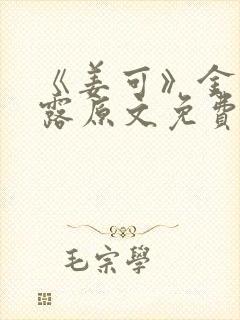 《姜可》金
露原文免費
毛宗學